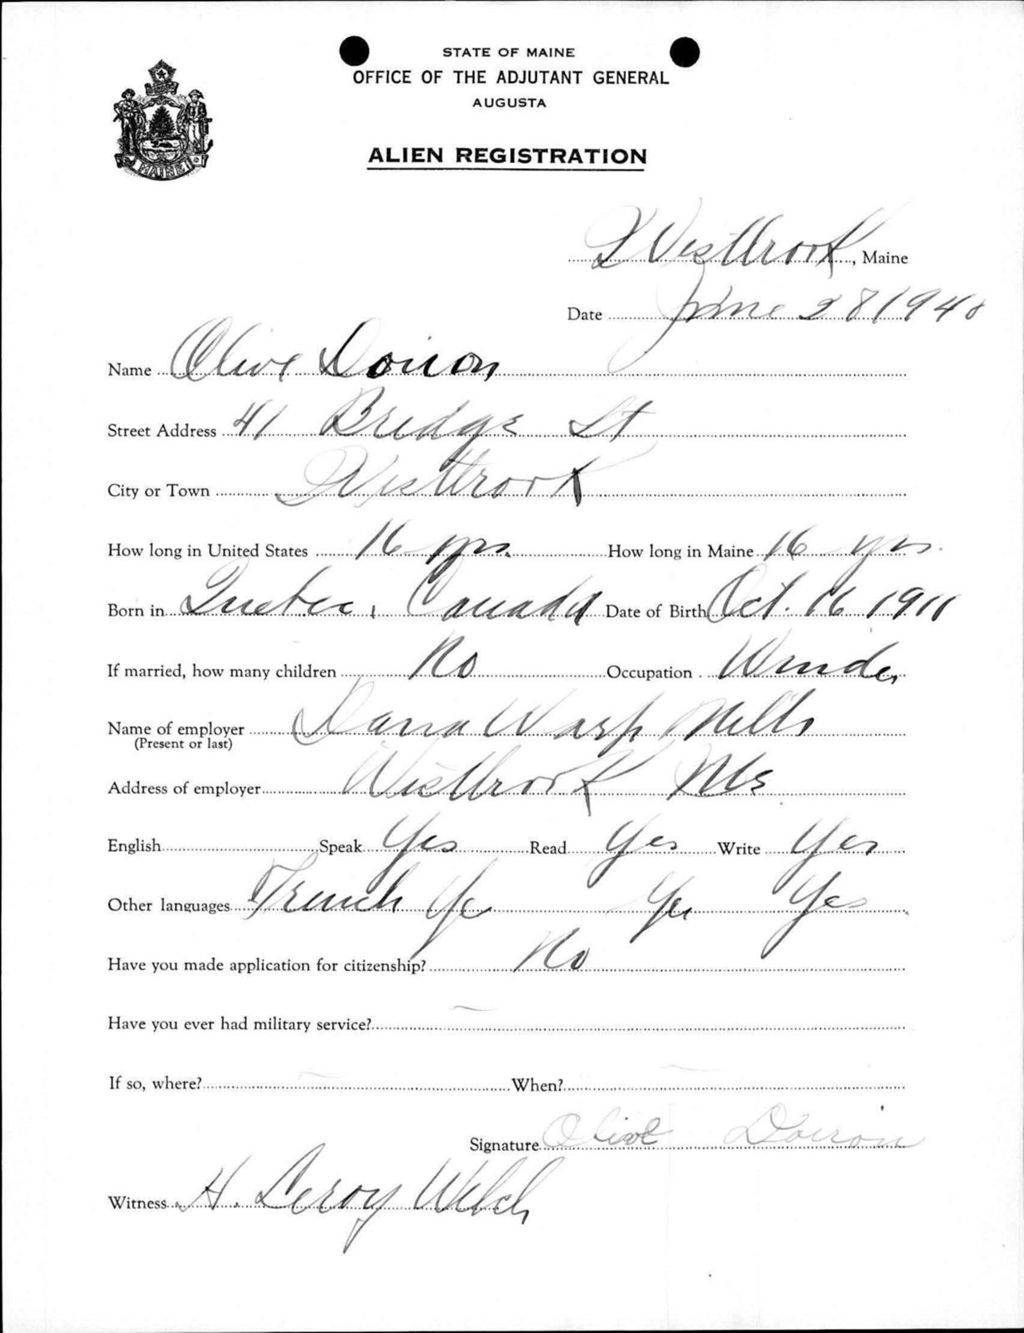 STATE OF MAINE
OFFICE OF THE ADJUTANT GENERAL
AUGUSTA
ALIEN REGISTRATION
Westbrook, Maine
Date June 28 1940
Name Olive Doiron
Street Address 41 Bridge St
City or Town Westbrook
How long in United States 16 yrs. How long in Maine 16 yrs.
Born in Quebec, Canada Date of Birth Oct. 16 1911
If married, how many children No Occupation Winder
Name of employer Dana Warp Mills
(Present or last)
Address of employer Westbrook Me
English Speak Yes Read Yes Write Yes
Other languages French Ye Yes Yes
Have you made application for citizenship? No
Have you ever had military service? —
If so, where? — When? —
Signature Olive Doiron
Witness H. Leroy Welch
MAINE